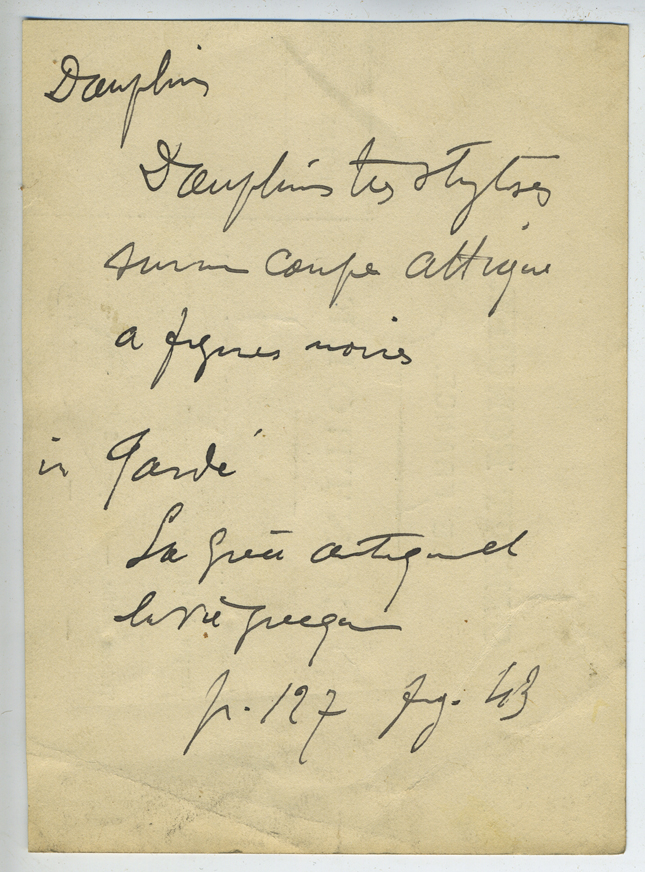 Dauphins
Dauphins très stylisés
sur une coupe attique
a figures noires
in Jardé
La Grèce antique et
la vie grecque
p. 127 fig. 43